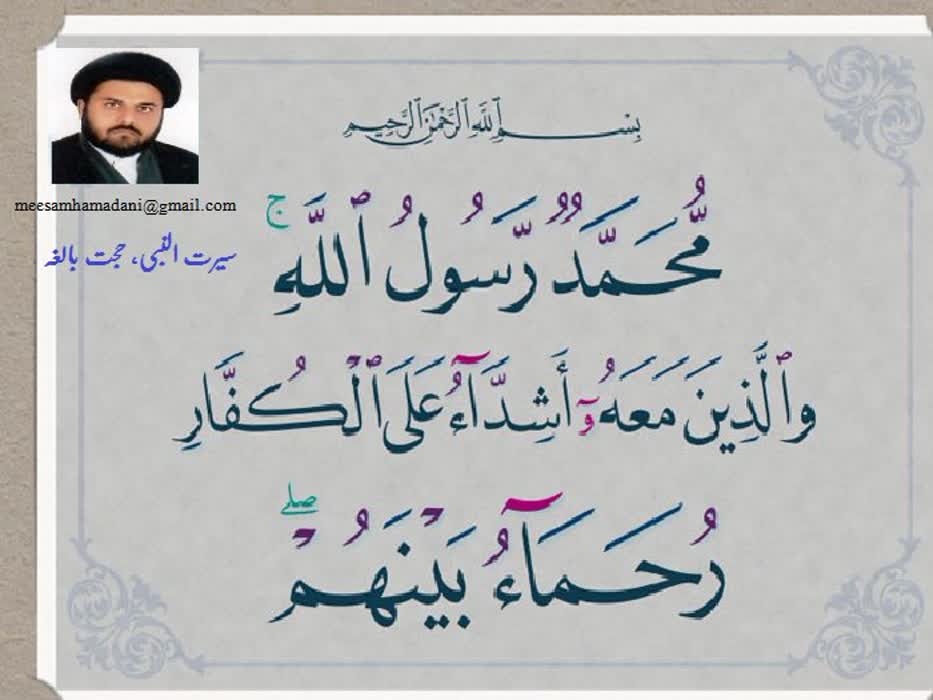 بِسْمِ ٱللَّهِ ٱلرَّحْمَٰنِ ٱلرَّحِيمِ
meesamhamadani@gmail.com
سیرت النبی، حجت بالغہ
مُّحَمَّدٌ رَّسُولُ ٱللَّهِ ۚ
وَٱلَّذِينَ مَعَهُۥٓ أَشِدَّآءُ عَلَى ٱلْكُفَّارِ
رُحَمَآءُ بَيْنَهُمْ ۖ